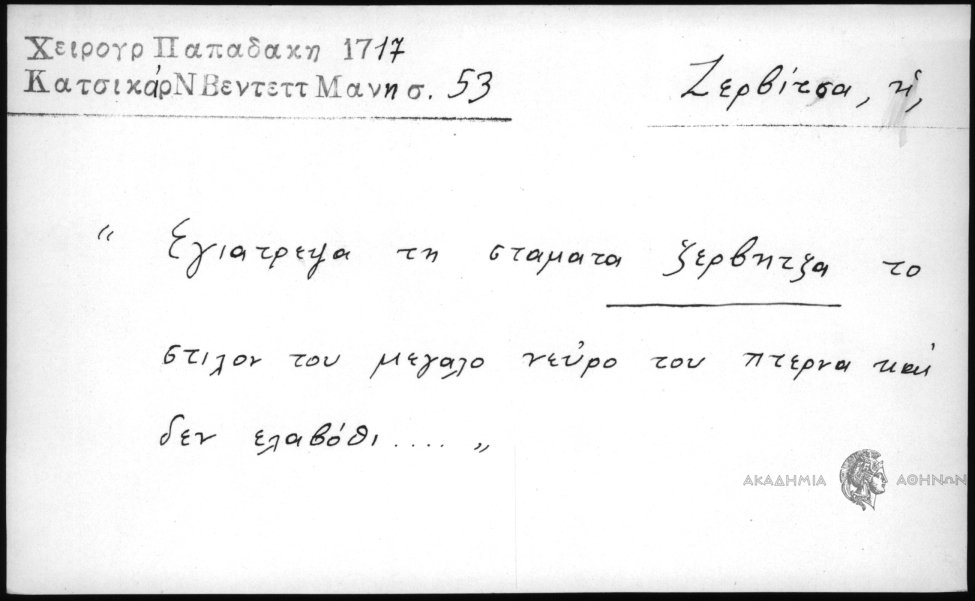 Χειρογρ Παπαδακη 1717
Κατσικάρ Ν Βεντεττ Μανη σ. 53
Ζερβίτσα, ἡ,
“ Εγιατρεψα τη σταματα ζερβητζα το
στιλον του μεγαλο νεῦρο του πτερνα και
δεν ελαβόθι .... „
ΑΚΑΔΗΜΙΑ ΑΘΗΝΩΝ